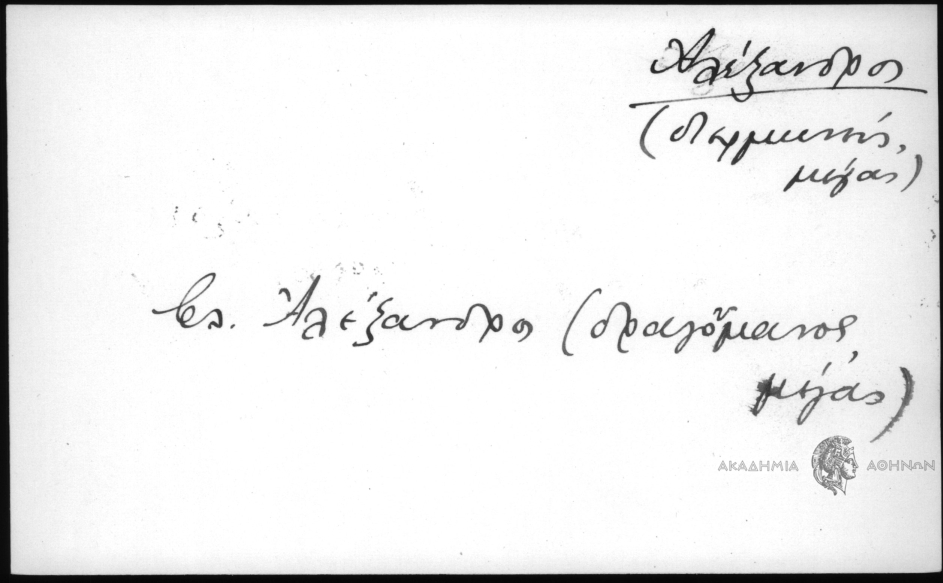 Ἀλέξανδρος
(διερμηνεύς,
μέγας)
Βλ. Ἀλέξανδρος (δραγομανος,
μέγας)
ΑΚΑΔΗΜΙΑ ΑΘΗΝΩΝ